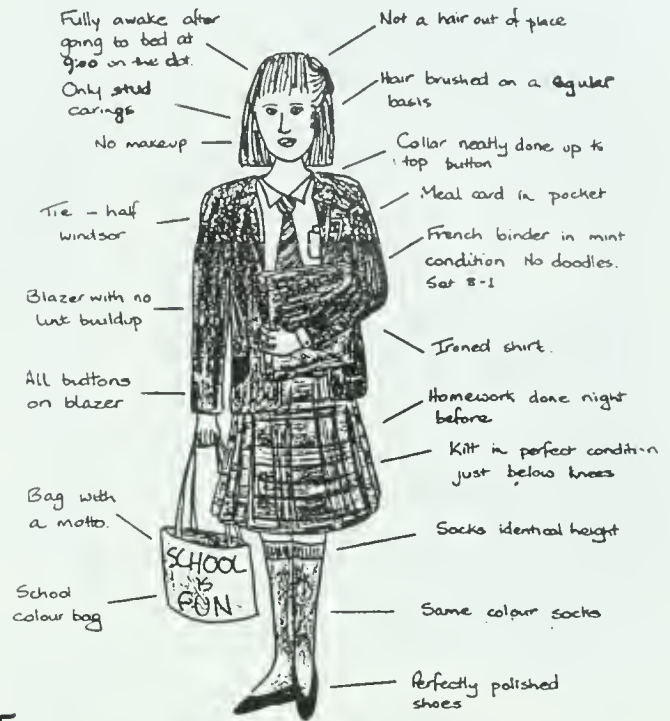 Fully awake after
going to bed at
9:00 on the dot.
Only stud
earings
No makeup
Tie - half
windsor
Blazer with no
lint buildup
All buttons
on blazer
Bag with
a motto.
School
colour bag
SCHOOL
IS
FUN.
Not a hair out of place
Hair brushed on a egular
basis
Collar neatly done up to
top button
Meal card in pocket
French binder in mint
condition No doodles.
Set 8-1
Ironed shirt.
Homework done night
before
Kilt in perfect condition
just below knees
Socks identical height
Same colour socks
Perfectly polished
shoes